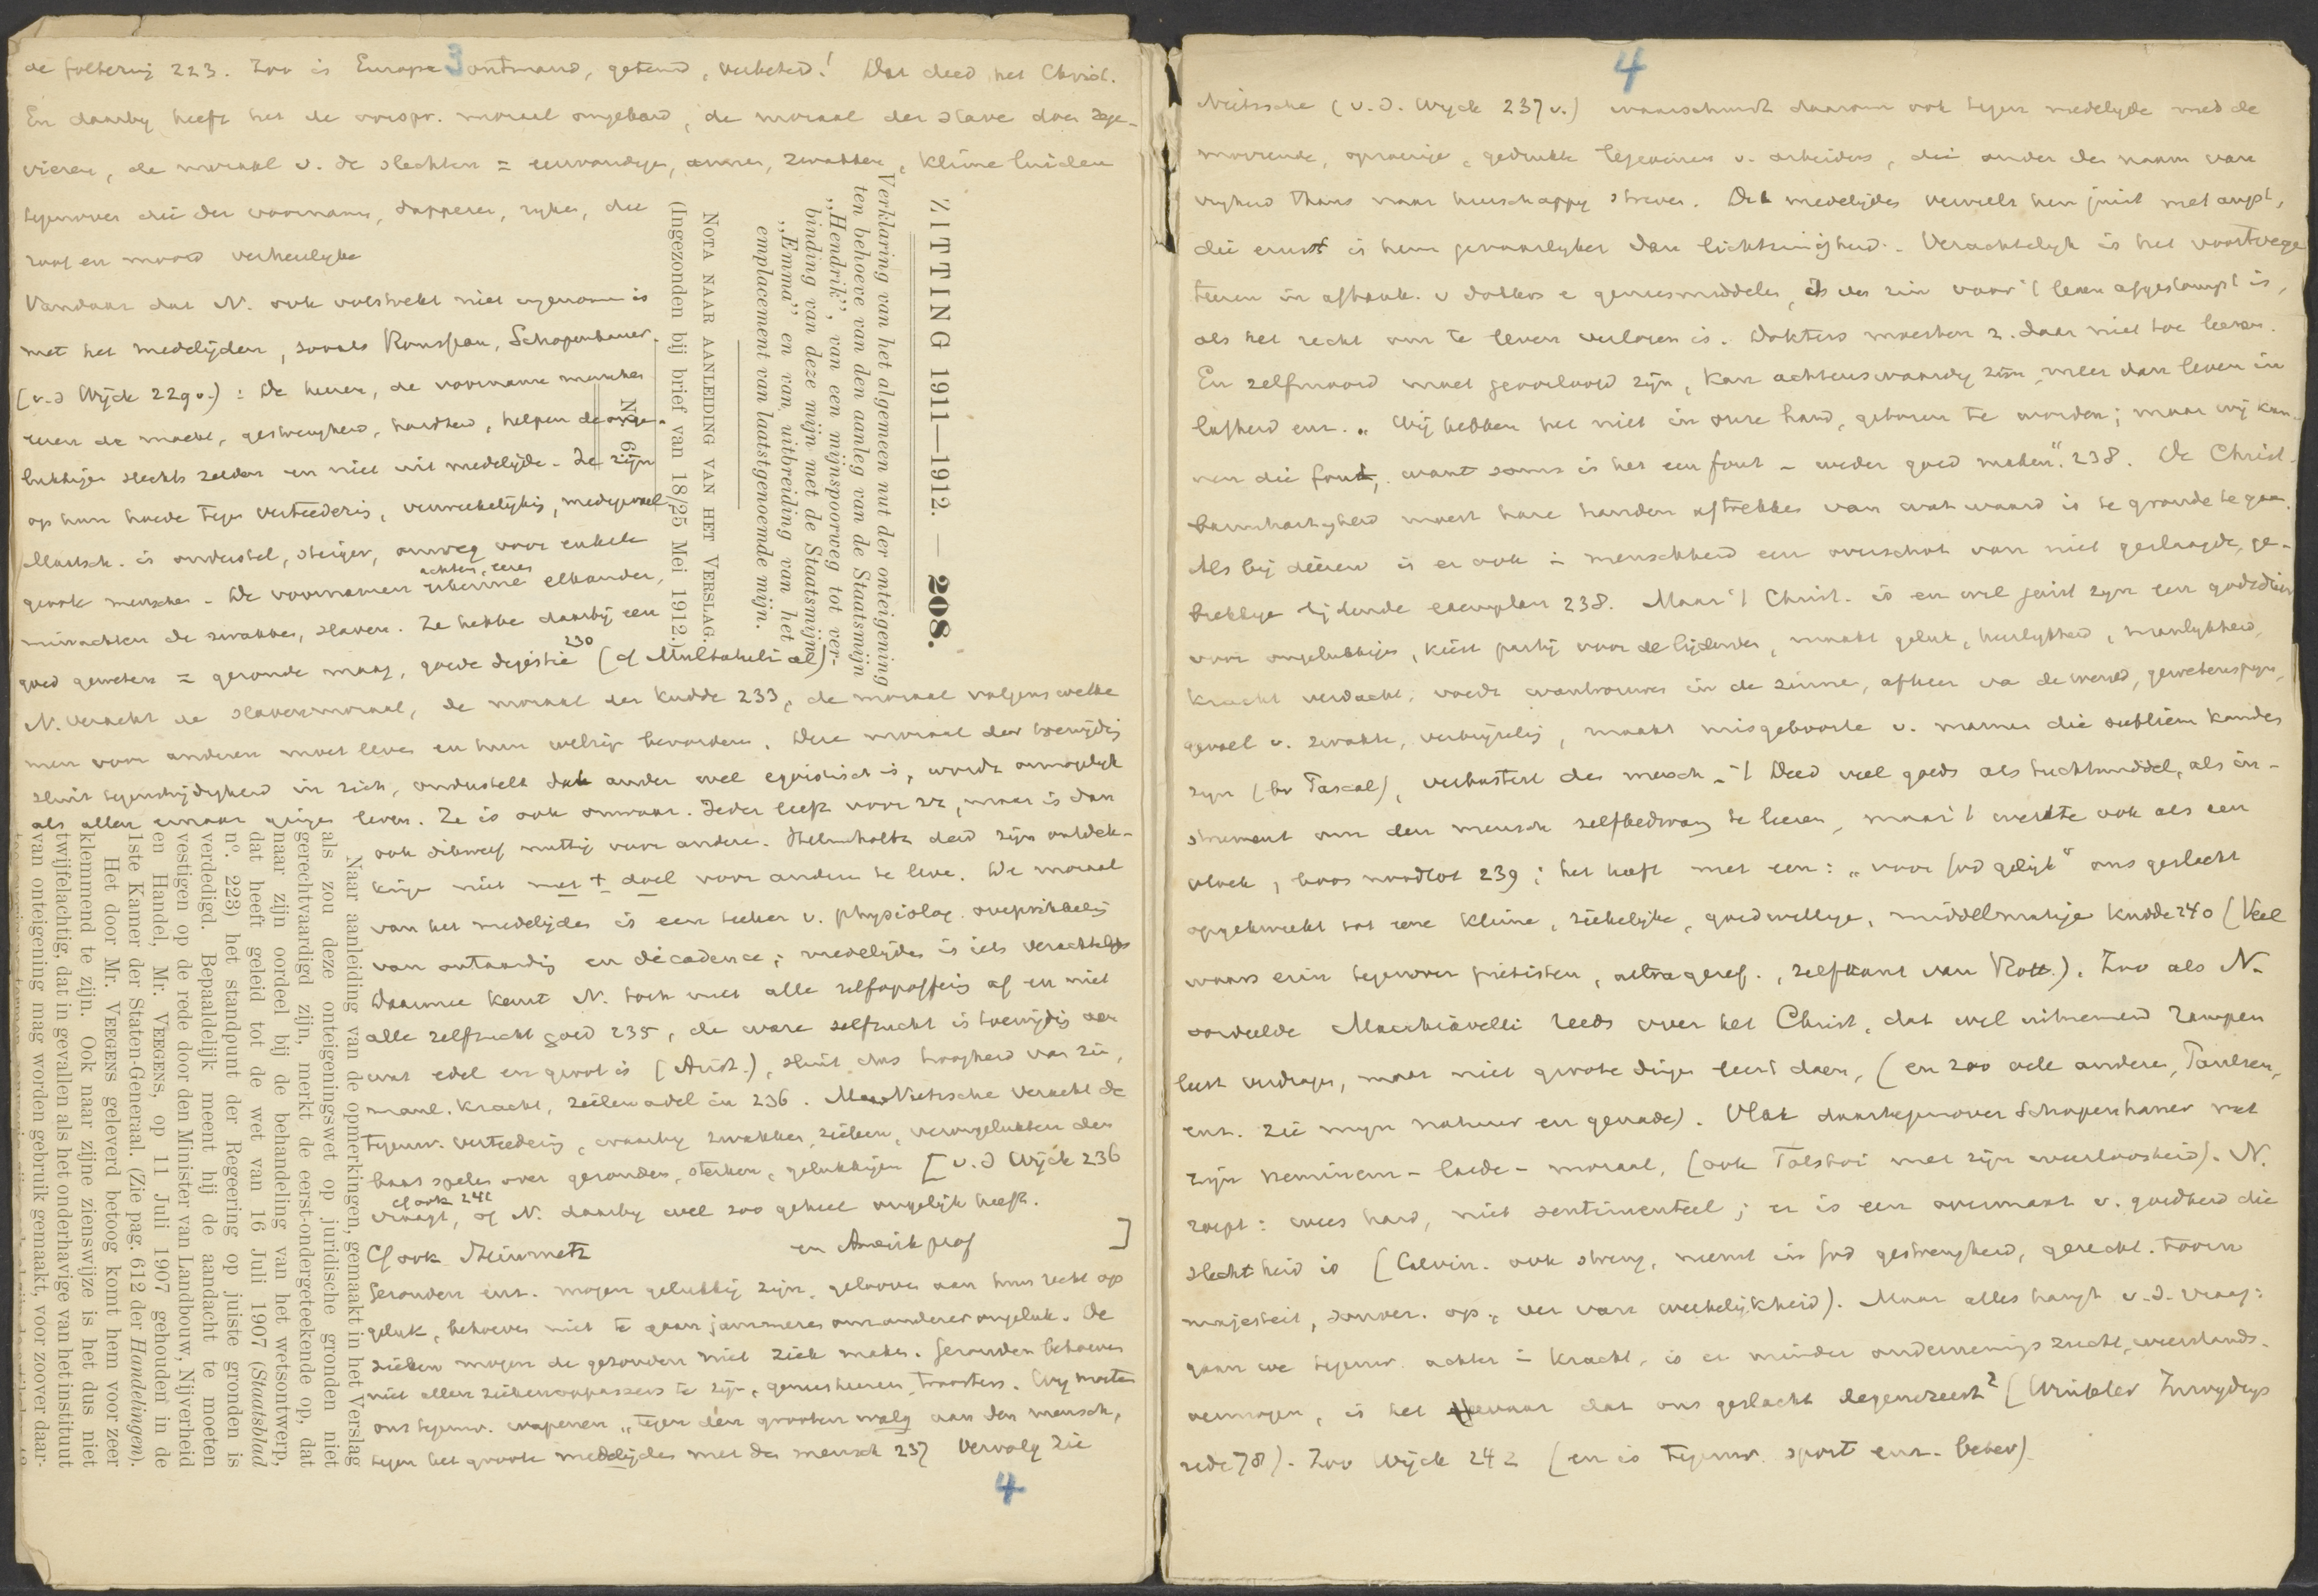 3
de foltering 223. Zoo is Europa ontmand, getemd, verbeterd! Dat deed het Christ.
En daarby heeft het de oorspr. moraal omgekeerd, de moraal der slaven doen zege-
vieren, de moraal v. de slechten = eenvoudigen, armen, zwakken, kleine luiden
tegenover die der voornamen, dapperen, ryken, die
roof en moord verheerlijken
Vandaar dat N. ook volstrekt niet ingenomen is
met het medelijden, zooals Rousseau, Schopenhauer.
(v.d Wijck 229v.) : De heeren, de voorname menschen
eeren de macht, gestrengheid, hardheid, helpen de onge-
lukkigen slechts zelden en niet uit medelijden. Ze zijn
op hun hoede tegen verteedering, verweekelijking, medegevoel.
Maatsch. is onderstel, steiger, omweg voor enkele
groote menschen. De voornamen achten, eeren elkander,
minachten de zwakken, slaven. Ze hebben daarbij een
goed geweten = gezonde maag, goede digestie 230 (cf Multatuli al)
N. veracht de slavenmoraal, de moraal der kudde 233, de moraal volgens welke
men voor anderen moet leven en hun welzijn bevorderen. Deze moraal der toewijding
sluit tegenstrijdigheid in zich, onderstelt dat ander wel egoistisch is, wordt onmogelijk
als allen ernaar gingen leven. Ze is ook onwaar. Ieder leeft voor zich, maar is dan
ook dikwerf nuttig voor anderen. Helmholtz deed zijn ontdek-
kingen niet met † doel voor anderen te leven. De moraal
van het medelijden is een teeken v. physiolog. overprikkeling
van ontaarding en décadence; medelijden is iets verachtelijks
Daarmee keurt N. toch niet alle zelfopoffering af en niet
alle zelfzucht goed 235, de ware zelfzucht is toewijding aan
wat edel en groot is (Arist.), sluit dus hoogheid van ziel,
manl. kracht, zielenadel in 236. Nietzsche veracht de
tegenw. verteedering, waarby zwakken, zieken, verongelukten den
baas spelen over gezonden, sterken, gelukkigen [v.d Wijck 236
cf ook 242
vraagt, of N. daarby wel zoo geheel ongelijk heeft.
Cf ook Steinmetz en Amerik prof ]
Gezonden enz. mogen gelukkig zijn, gelooven aan hun recht op
geluk, behoeven niet te gaan jammeren om anderer ongeluk. De
zieken mogen de gezonden niet ziek maken. Gezonden behoeven
niet allen ziekenoppassers te zijn, geneesheeren, troosters. Wy moeten
ons tegenw. wapenen „tegen den grooten walg aan den mensch,
tegen het groote medelijden met den mensch 237 Vervolg zie
4
ZITTING 1911—1912. — 208.
Verklaring van het algemeen nut der onteigening
ten behoeve van den aanleg van de Staatsmijn
„Hendrik”, van een mijnspoorweg tot ver-
binding van deze mijn met de Staatsmijn
„Emma” en van uitbreiding van het
emplacement van laatstgenoemde mijn.
NOTA NAAR AANLEIDING VAN HET VERSLAG.
(Ingezonden bij brief van 18/25 Mei 1912.)
N°. 6.
Naar aanleiding van de opmerkingen, gemaakt in het Verslag
als zou deze onteigeningswet op juridische gronden niet
gerechtvaardigd zijn, merkt de eerst-ondergeteekende op, dat
naar zijn oordeel bij de behandeling van het wetsontwerp,
dat heeft geleid tot de wet van 16 Juli 1907 (Staatsblad
n°. 223) het standpunt der Regeering op juiste gronden is
verdedigd. Bepaaldelijk meent hij de aandacht te moeten
vestigen op de rede door den Minister van Landbouw, Nijverheid
en Handel, Mr. VEEGENS, op 11 Juli 1907 gehouden in de
1ste Kamer der Staten-Generaal. (Zie pag. 612 der Handelingen).
Het door Mr. VEEGENS geleverd betoog komt hem voor zeer
klemmend te zijn. Ook naar zijne zienswijze is het dus niet
twijfelachtig, dat in gevallen als het onderhavige van het instituut
van onteigening mag worden gebruik gemaakt, voor zoover daar-
4
Nietzsche (v.d. Wyck 237v.) waarschuwt daarom ook tegen medelyden met de
morrende, oproerige, gedrukte v. arbeiders, die onder den naam van
vryheid thans naar heerschappy streven. Dit medelijden vervult hem juist met angst,
die ernst is hem gevaarlyker dan lichtzinnigheid. Verachtelyk is het voortvege-
teeren in afhank. v dokters en geneesmiddelen, als de zin voor 't leven afgestompt is,
als het recht om te leven verloren is. Dokters moesten z. daar niet toe leenen.
En zelfmoord moet geoorloofd zijn, kan achtenswaardig zijn, meer dan leven in
lafheid enz. „Wij hebben het niet in onze hand, geboren te worden; maar wij kun-
nen die fout, want soms is het een fout – weder goed maken”. 238. De Christ-
barmhartigheid moest hare handen aftrekken van wat waard is te gronde te gaan.
Als bij dieren is er ook in menschheid een overschot van niet geslaagde, ge-
brekkige lijdende exemplaren 238. Maar 't Christ. is en wil juist zyn een godsdienst
voor ongelukkigen, kiest partij voor de lijdenden, maakt geluk, heerlykheid, manlykheid,
kracht verdacht, voedt wantrouwen in de zinnen, afkeer van de wereld, gewetenspijn,
gevoel v. zwakte, vertwijfeling, maakt misgeboorte v. mannen die sublieme konden
zyn (bv Pascal), verbastert den mensch. 't Deed veel goeds als tuchtmiddel, als in-
strument om den mensch zelfbedwang te leeren, maar 't werkte ook als een
vloek, boos noodlot 239; het heeft met een: „voor God gelijk” ons geslacht
opgekweekt tot eene kleine, ziekelyke, goedwillige, middelmatige kudde 240 (Veel
waars erin tegenover pietisten, ultrageref., zelfkant van Rott.). Zoo als N.
oordeelde Macchiavelli reeds over het Christ, dat wel uitnemend rampen
leert verdragen, maar niet groote dingen leert doen, (en zoo vele anderen, Paulsen,
enz. zie myn natuur en genade). Vlak daartegenover Schopenhauer met
zijn neminem-laede-moraal, (ook Tolstoi met zijn weerloosheid). N.
roept: wees hard, niet sentimenteel; er is een overmaat v. goedheid die
slechtheid is (Calvin. ook streng, neemt in God gestrengheid, gerecht. toorn
majesteit, souver. op, ver van weekelijkheid). Maar alles hangt v.d. vraag:
gaan we tegenw. achter in kracht, is er minder ondernemingszucht, weerstands-
vermogen, is het gevaar dat ons geslacht degenereert? (Winkler
rede 78). Zoo Wijck 242 (en is tegenw. sport enz. beter).